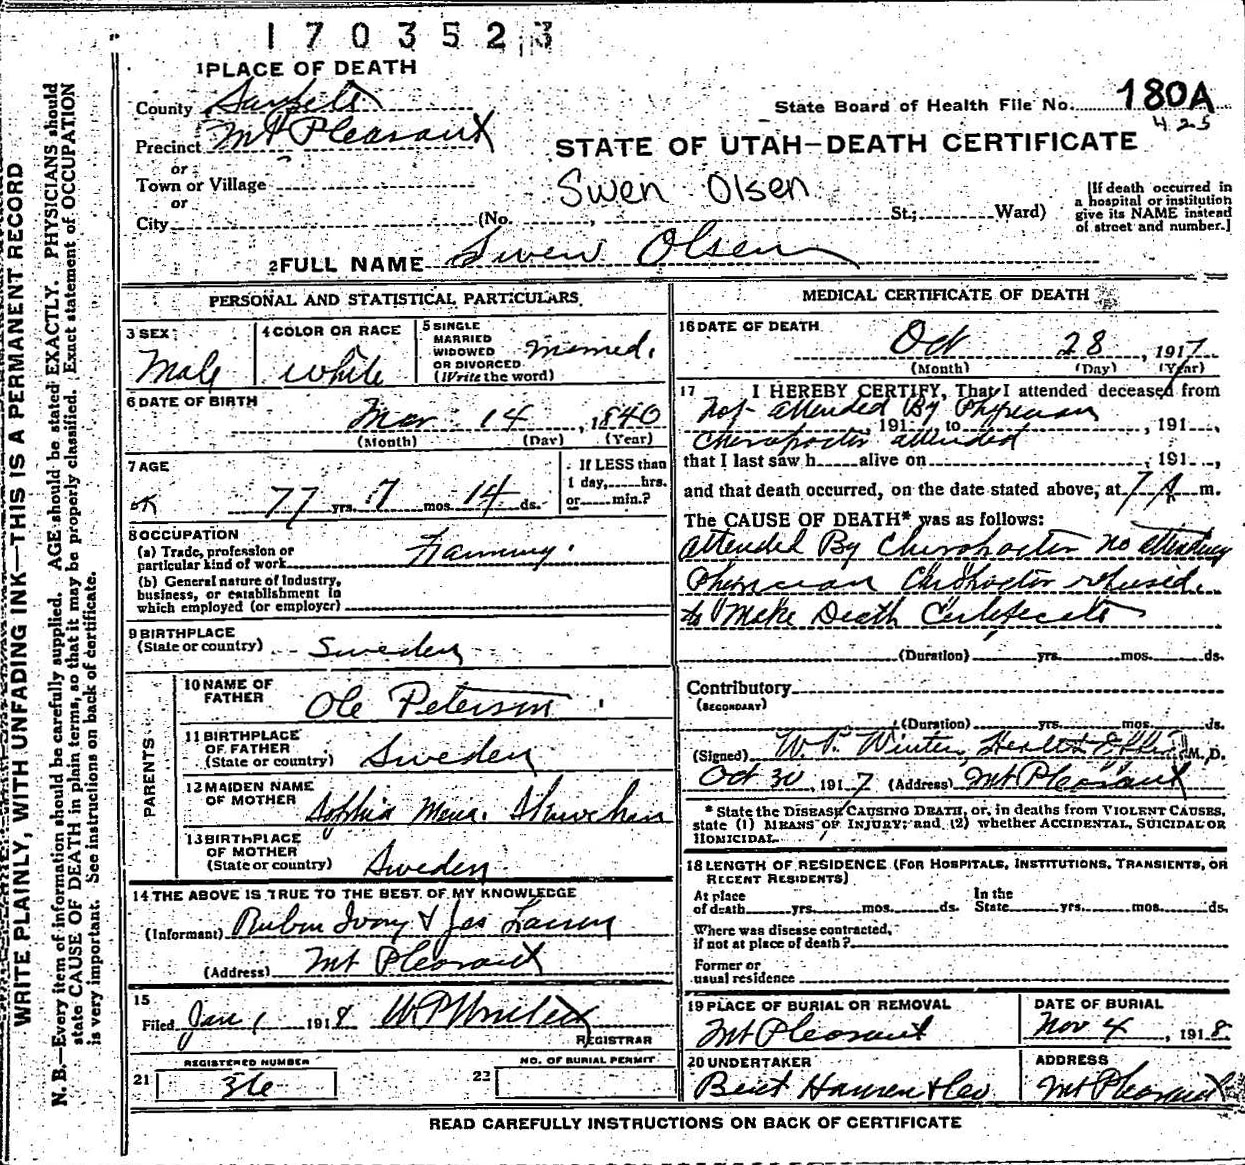 1703523
1 PLACE OF DEATH
County Sanpete
State Board of Health File No. 180A
425
Precinct Mt Pleasant
STATE OF UTAH—DEATH CERTIFICATE
or
Town or Village
Swen Olsen
or
City (No. St.; Ward)
[If death occurred in
a hospital or institution
give its NAME instead
of street and number.]
2 FULL NAME Swen Olsen
WRITE PLAINLY, WITH UNFADING INK—THIS IS A PERMANENT RECORD
N. B.—Every item of information should be carefully supplied. AGE should be stated EXACTLY. PHYSICIANS should
state CAUSE OF DEATH in plain terms, so that it may be properly classified. Exact statement of OCCUPATION
is very important. See instructions on back of certificate.
PERSONAL AND STATISTICAL PARTICULARS
3 SEX
Male
4 COLOR OR RACE
White
5 SINGLE
MARRIED
WIDOWED
OR DIVORCED
(Write the word)
Married.
6 DATE OF BIRTH
Mar 14, 1840
(Month) (Day) (Year)
7 AGE
77 yrs. 7 mos. 14 ds.
If LESS than
1 day, hrs.
or min.?
8 OCCUPATION
(a) Trade, profession or
particular kind of work Farming.
(b) General nature of industry,
business, or establishment in
which employed (or employer)
9 BIRTHPLACE
(State or country) Sweden
PARENTS
10 NAME OF
FATHER Ole Peterson
11 BIRTHPLACE
OF FATHER
(State or country) Sweden
12 MAIDEN NAME
OF MOTHER Sophia
13 BIRTHPLACE
OF MOTHER
(State or country) Sweden
14 THE ABOVE IS TRUE TO THE BEST OF MY KNOWLEDGE
(Informant) Ruben Ivory & Jas Larsen
(Address) Mt Pleasant
15
Filed Jan 1 1918 W P Winters
REGISTRAR
REGISTERED NUMBER
21 36
NO. OF BURIAL PERMIT
22
MEDICAL CERTIFICATE OF DEATH
16 DATE OF DEATH
Oct 28, 1917
(Month) (Day) (Year)
17 I HEREBY CERTIFY, That I attended deceased from
Not attended By Physician
, 191 , to , 191 ,
Chiropractor attended
that I last saw h alive on , 191 ,
and that death occurred, on the date stated above, at 7 A m.
The CAUSE OF DEATH* was as follows:
attended By Chiropractor no attending
Physician Chiropractor refused
to Make Death Certificate
(Duration) yrs. mos. ds.
Contributory
(SECONDARY)
(Duration) yrs. mos. ds.
(Signed) W. P. Winters, Health Officer M. D.
Oct 30, 1917 (Address) Mt Pleasant
* State the DISEASE CAUSING DEATH, or, in deaths from VIOLENT CAUSES,
state (1) MEANS OF INJURY; and (2) whether ACCIDENTAL, SUICIDAL OR
HOMICIDAL.
18 LENGTH OF RESIDENCE (FOR HOSPITALS, INSTITUTIONS, TRANSIENTS, OR
RECENT RESIDENTS)
At place
of death yrs. mos. ds.
In the
State yrs. mos. ds.
Where was disease contracted,
if not at place of death?
Former or
usual residence
19 PLACE OF BURIAL OR REMOVAL
Mt Pleasant
DATE OF BURIAL
Nov 4, 1918
20 UNDERTAKER
Bent Hansen & Co
ADDRESS
Mt Pleasant
READ CAREFULLY INSTRUCTIONS ON BACK OF CERTIFICATE